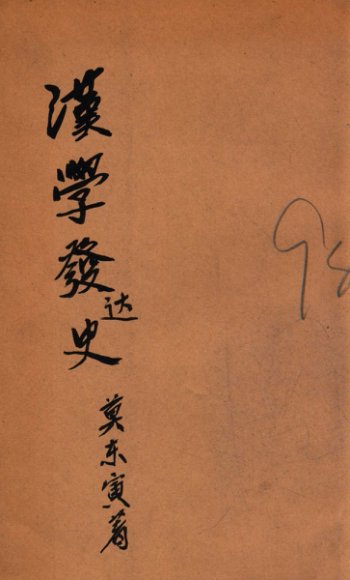 漢學發达史
莫东寅著
98